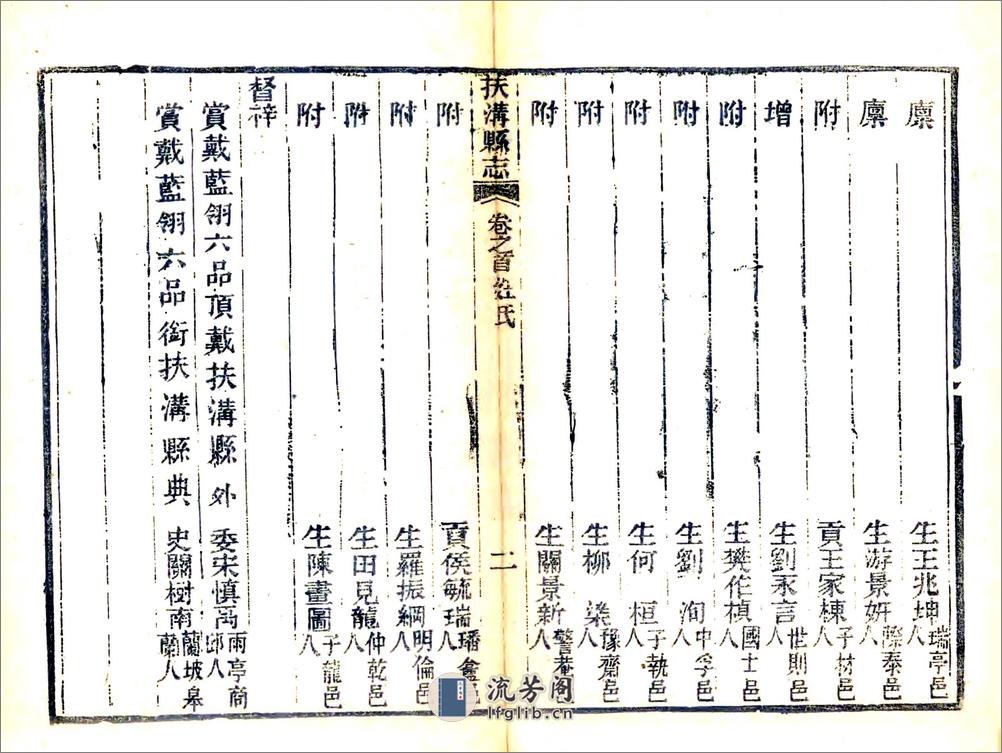 廩　生王兆坤瑞亭邑人
廩　生游景妍際泰邑人
附　貢王家棟子材邑人
增　生劉永言世則邑人
附　生樊作楨國士邑人
附　生劉　洵中孚邑人
附　生何　桓子執邑人
附　生柳　檠豫齋邑人
附　生關景新警菴邑人
扶溝縣志　卷之首姓氏　二
附　貢侯毓瑞璠龕邑人
附　生羅振綱明倫邑人
附　生田見龍仲乾邑人
附　生陳畫圖子龍邑人
督梓
賞戴藍翎六品頂戴扶溝縣外委宋慎禹雨亭商邱人
賞戴藍翎六品銜扶溝縣典史關樹南蘭坡皋蘭人
流芳阁
lfglib.cn